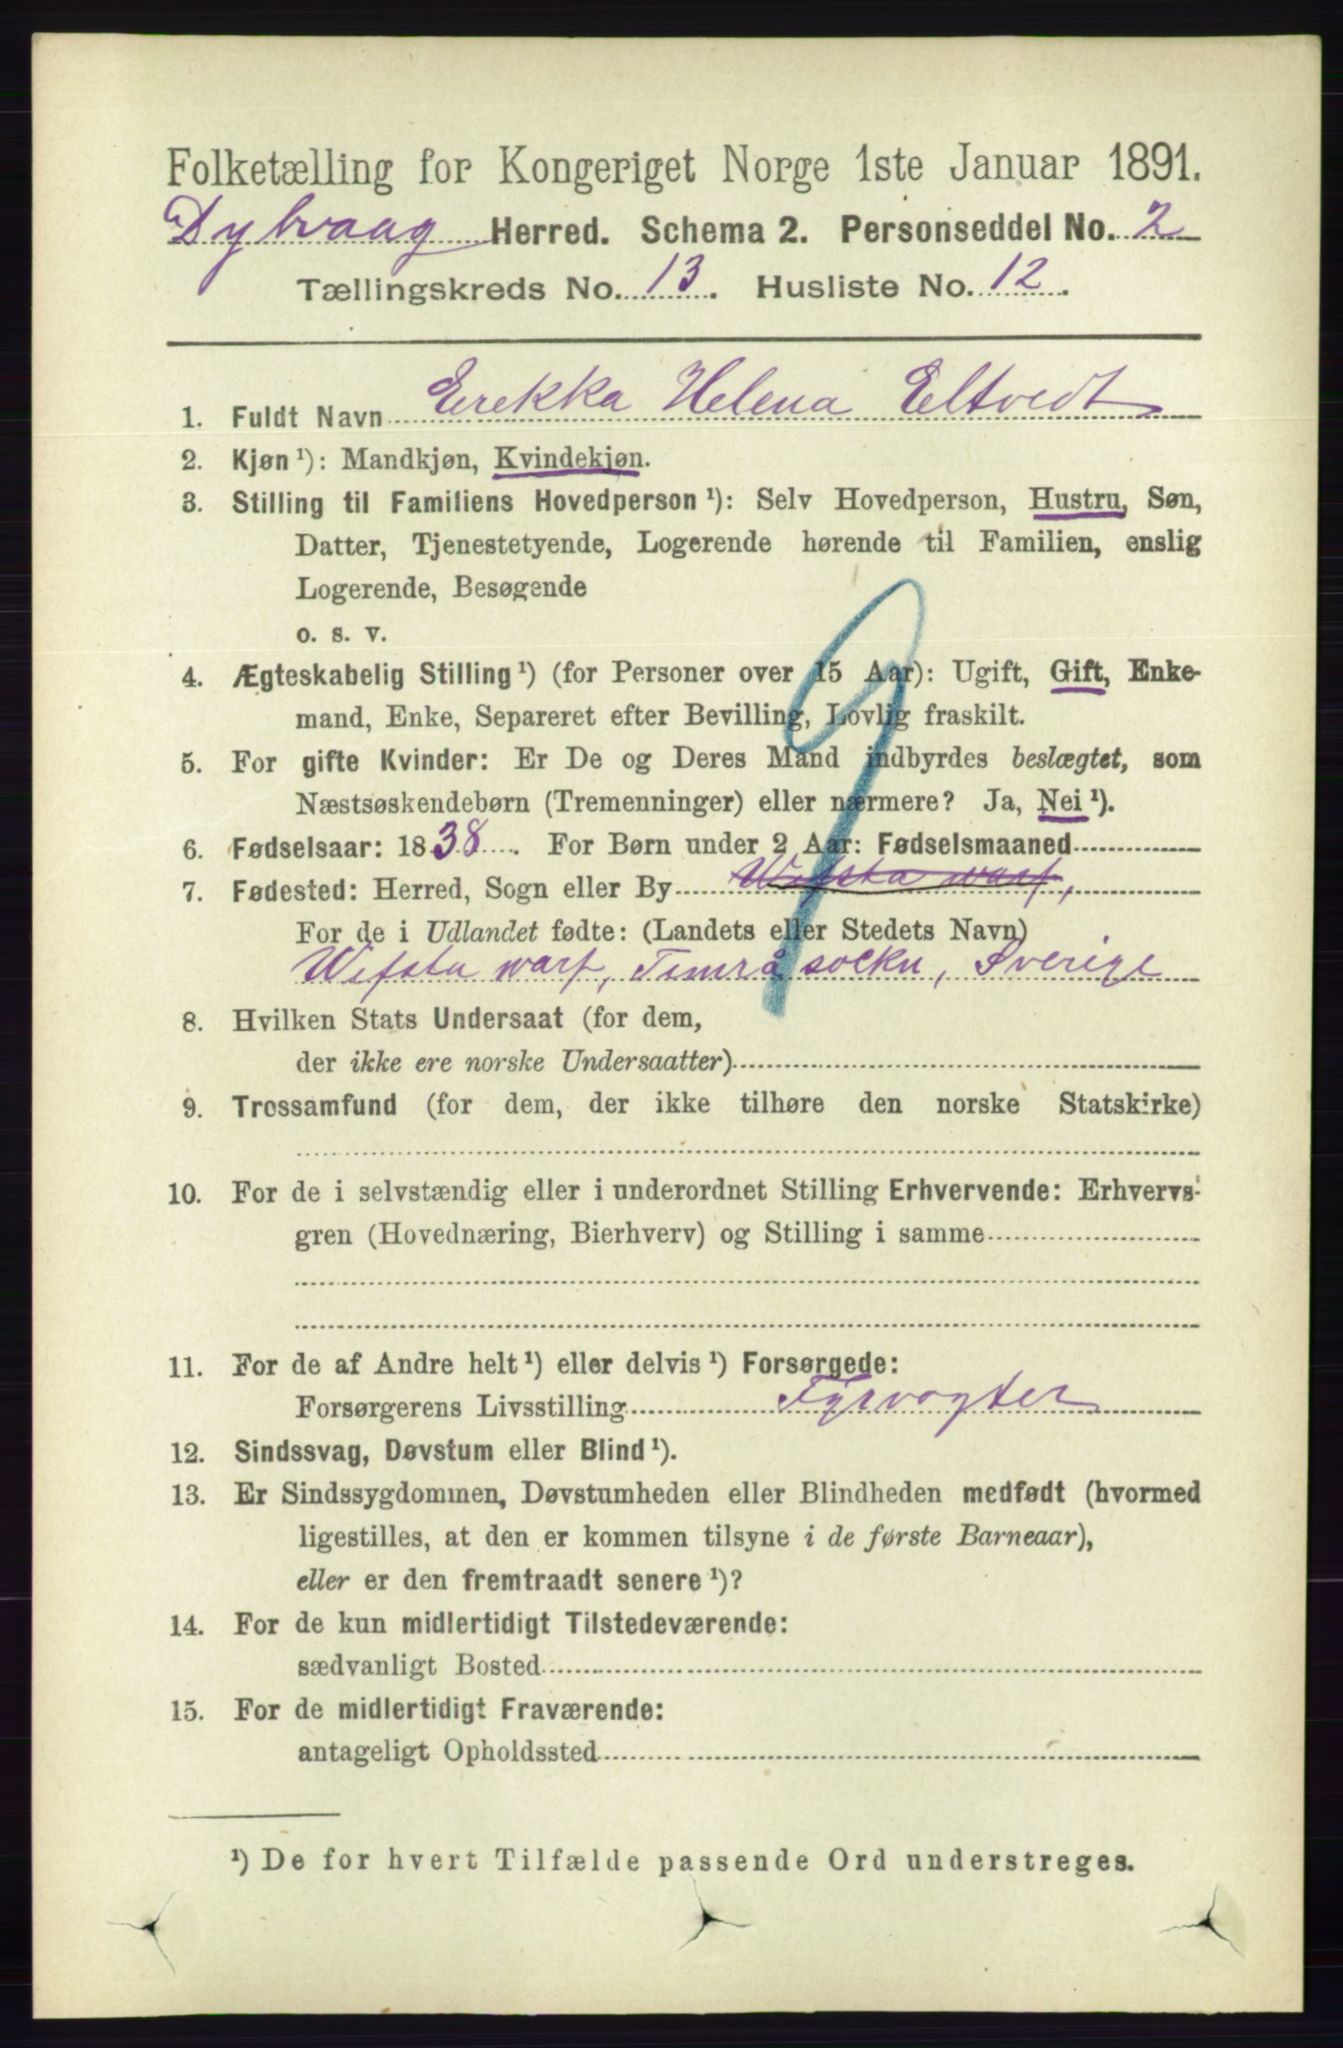 Folketælling for Kongeriget Norge 1ste Januar 1891.
Dybvaag Herred. Schema 2. Personseddel No. 2
Tællingskreds No. 13. Husliste No. 12.
1. Fuldt Navn Erekka Helena Eltvedt
2. Kjøn ¹): Mandkjøn, Kvindekjøn.
3. Stilling til Familiens Hovedperson ¹): Selv Hovedperson, Hustru, Søn,
Datter, Tjenestetyende, Logerende hørende til Familien, enslig
Logerende, Besøgende
o. s. v.
4. Ægteskabelig Stilling ¹) (for Personer over 15 Aar): Ugift, Gift, Enke-
mand, Enke, Separeret efter Bevilling, Lovlig fraskilt.
5. For gifte Kvinder: Er De og Deres Mand indbyrdes beslægtet, som
Næstsøskendebørn (Tremenninger) eller nærmere? Ja, Nei ¹).
6. Fødselsaar: 1838. For Børn under 2 Aar: Fødselsmaaned
7. Fødested: Herred, Sogn eller By Wifsta warf,
For de i Udlandet fødte: (Landets eller Stedets Navn)
Wifsta warf, Timrå sockn, Sverige
8. Hvilken Stats Undersaat (for dem,
der ikke ere norske Undersaatter)
9. Trossamfund (for dem, der ikke tilhøre den norske Statskirke)
10. For de i selvstændig eller i underordnet Stilling Erhvervende: Erhvervs-
gren (Hovednæring, Bierhverv) og Stilling i samme
11. For de af Andre helt ¹) eller delvis ¹) Forsørgede:
Forsørgerens Livsstilling Fyrvogter
12. Sindssvag, Døvstum eller Blind ¹).
13. Er Sindssygdommen, Døvstumheden eller Blindheden medfødt (hvormed
ligestilles, at den er kommen tilsyne i de første Barneaar),
eller er den fremtraadt senere ¹)?
14. For de kun midlertidigt Tilstedeværende:
sædvanligt Bosted
15. For de midlertidigt Fraværende:
antageligt Opholdssted
¹) De for hvert Tilfælde passende Ord understreges.
9